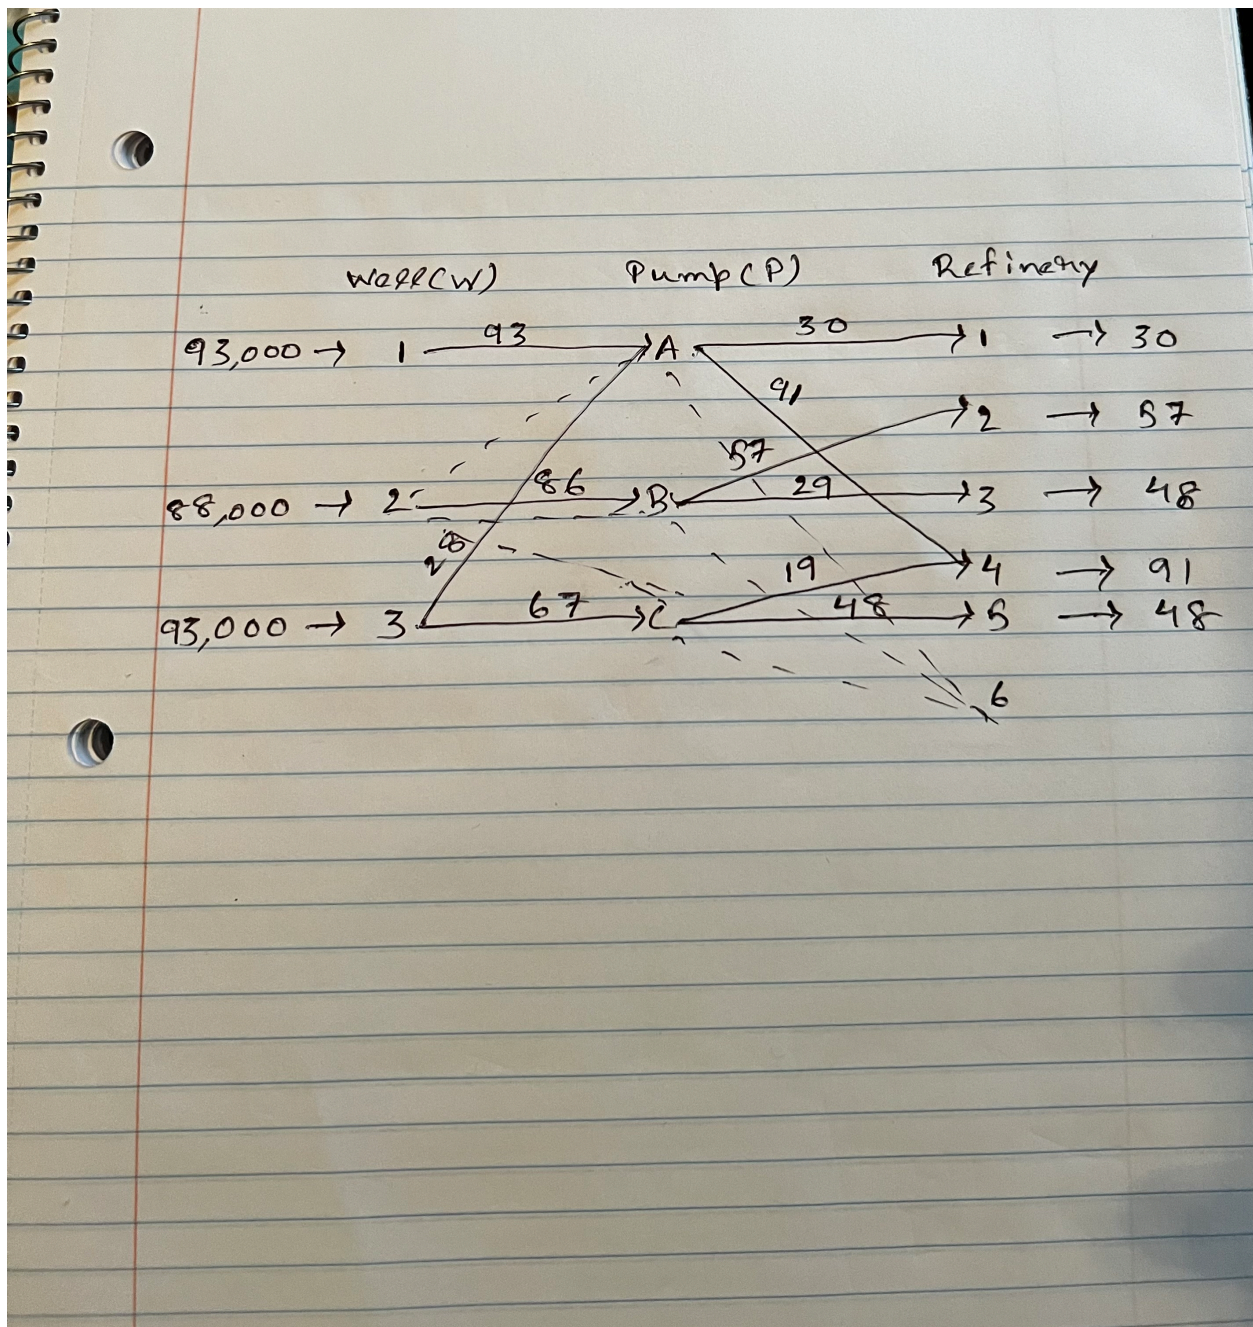 Well(W) Pump(P) Refinery
93,000 → 1 93 A 30 1 → 30
91
2 → 57
57
88,000 → 2 86 B 29 3 → 48
28
19 4 → 91
93,000 → 3 67 C 48 5 → 48
6